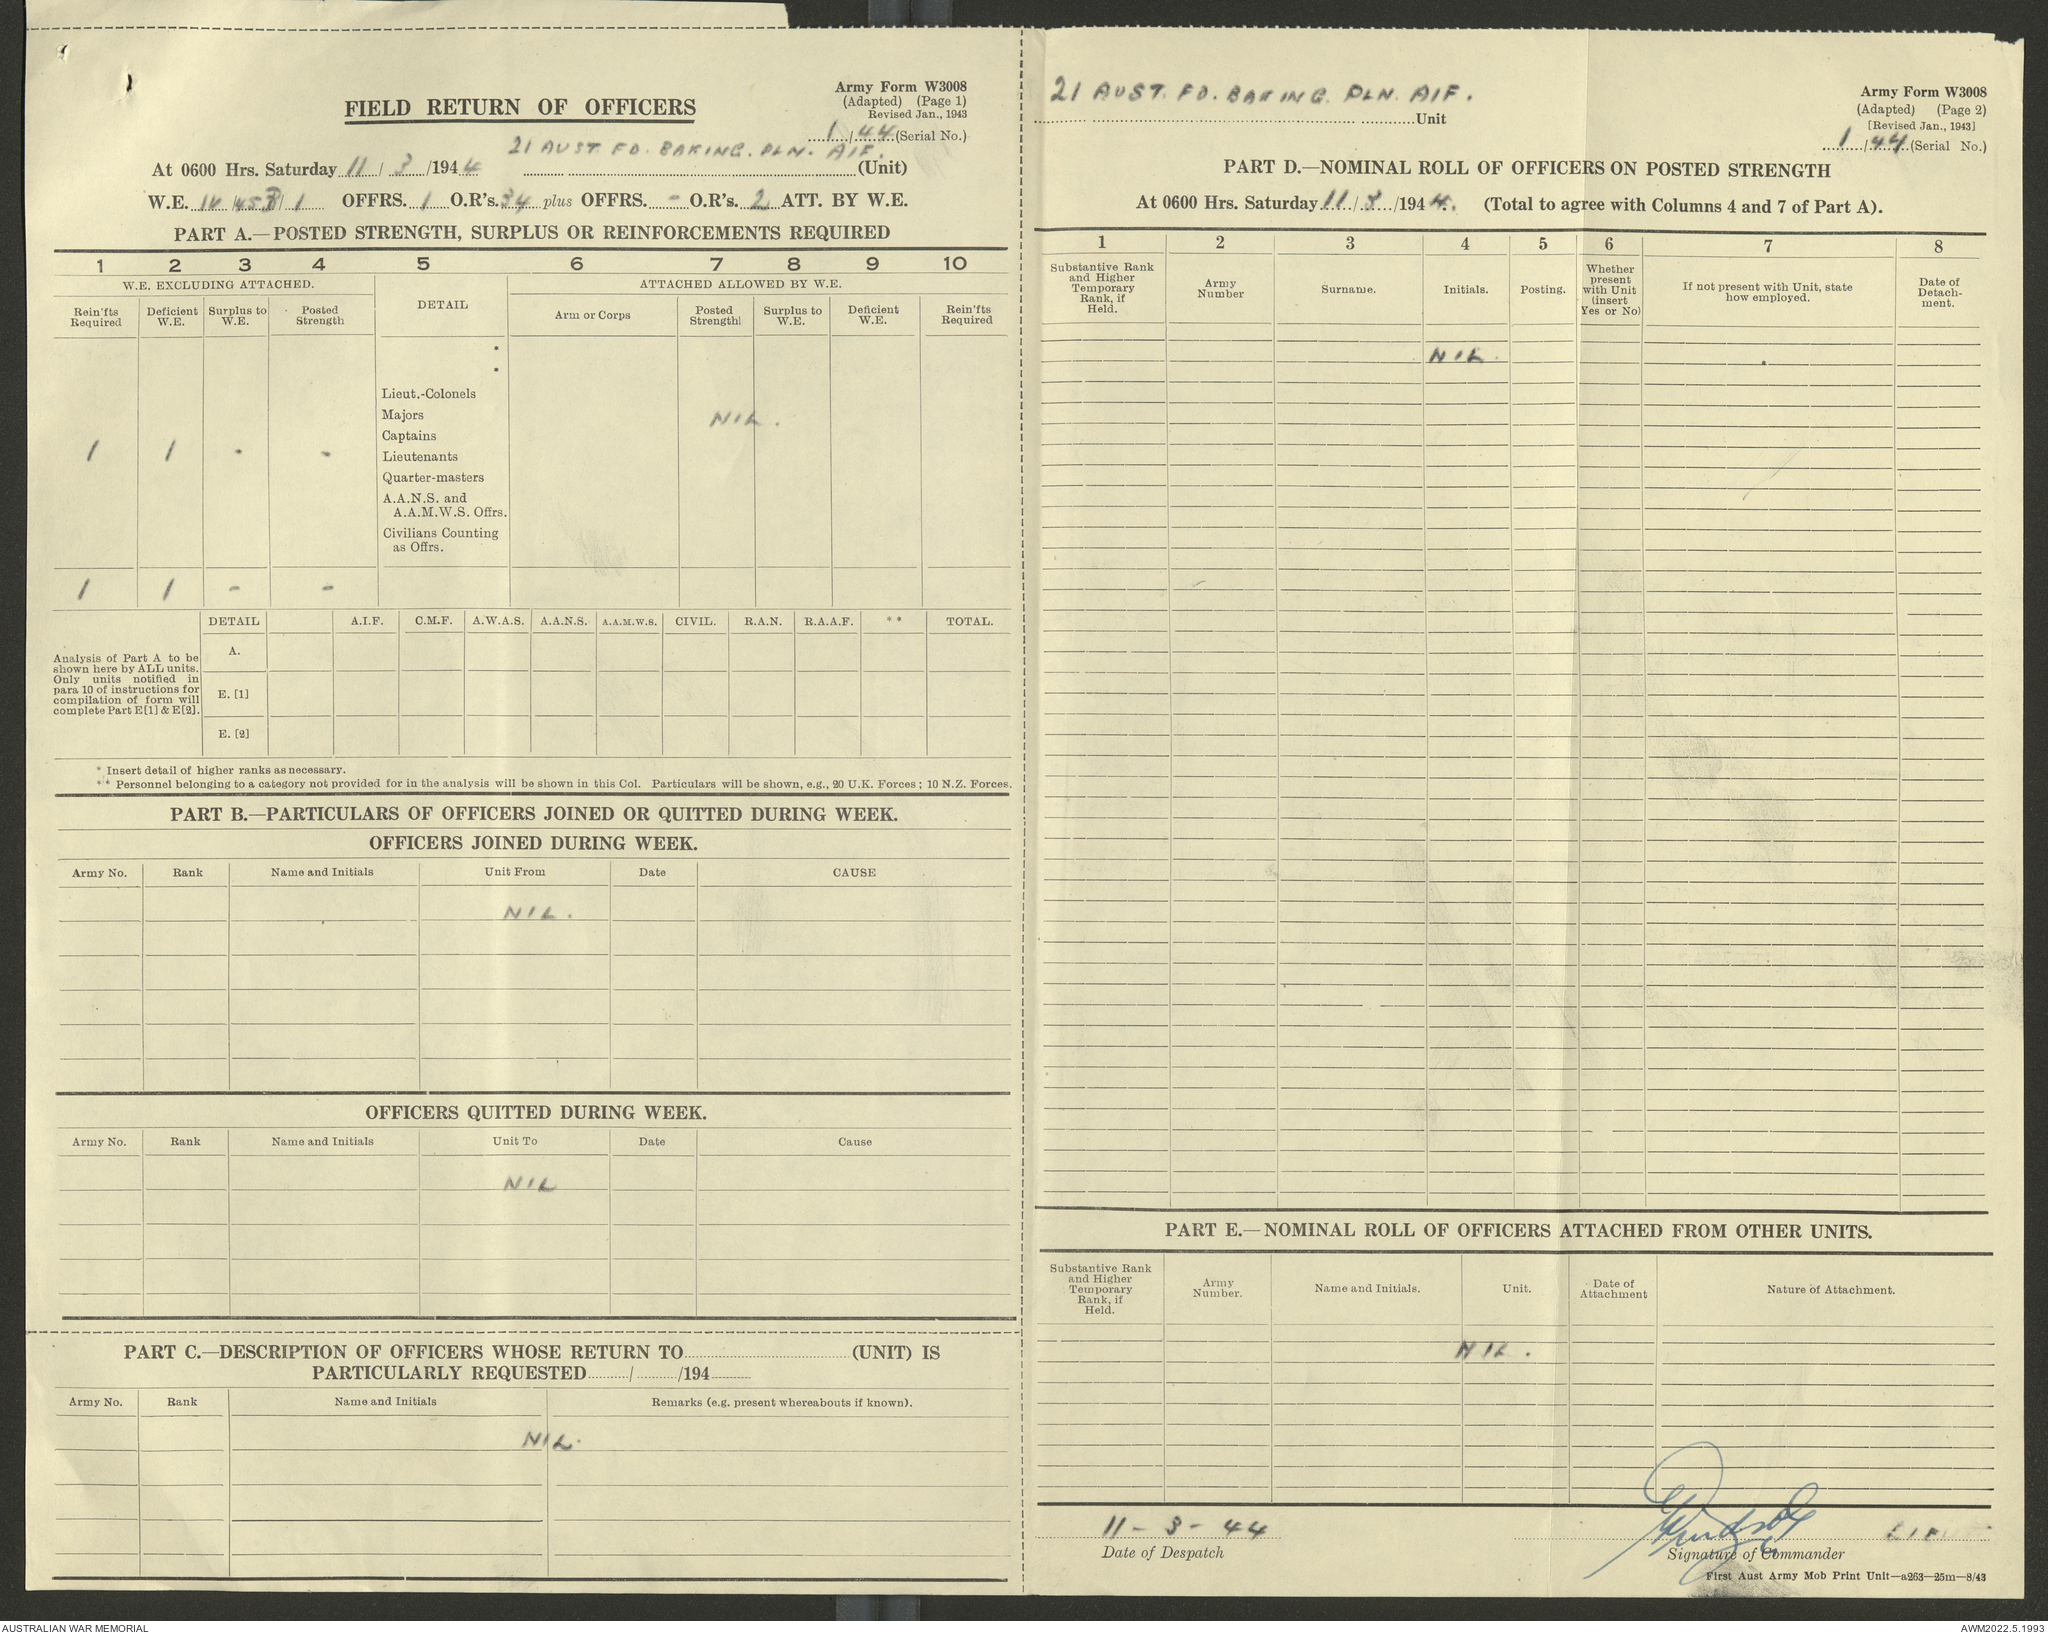 Army Form W3008
(Adapted) (Page 1)
Revised Jan., 1943
FIELD RETURN OF OFFICERS
1/44 (Serial No.)
21 AUST. FD. BAKING. PLN. AIF.
At 0600 Hrs. Saturday 11/3/1944 (Unit)
W.E. OFFRS. 1 O.R's. 34 plus OFFRS. - O.R's. 2 ATT. BY W.E.
PART A.—POSTED STRENGTH, SURPLUS OR REINFORCEMENTS REQUIRED
1 2 3 4 5 6 7 8 9 10
W.E. EXCLUDING ATTACHED. DETAIL ATTACHED ALLOWED BY W.E.
Rein'fts Required Deficient W.E. Surplus to W.E. Posted Strength Arm or Corps Posted Strength Surplus to W.E. Deficient W.E. Rein'fts Required
*
*
Lieut.-Colonels
Majors NIL.
Captains
1 1 - - Lieutenants
Quarter-masters
A.A.N.S. and
A.A.M.W.S. Offrs.
Civilians Counting
as Offrs.
1 1 - -
DETAIL A.I.F. C.M.F. A.W.A.S. A.A.N.S. A.A.M.W.S. CIVIL. R.A.N. R.A.A.F. ** TOTAL.
Analysis of Part A to be
shown here by ALL units.
Only units notified in
para 10 of instructions for
compilation of form will
complete Part E[1] & E[2].
A.
E. [1]
E. [2]
* Insert detail of higher ranks as necessary.
** Personnel belonging to a category not provided for in the analysis will be shown in this Col. Particulars will be shown, e.g., 20 U.K. Forces; 10 N.Z. Forces.
PART B.—PARTICULARS OF OFFICERS JOINED OR QUITTED DURING WEEK.
OFFICERS JOINED DURING WEEK.
Army No. Rank Name and Initials Unit From Date CAUSE
NIL.
OFFICERS QUITTED DURING WEEK.
Army No. Rank Name and Initials Unit To Date Cause
NIL
PART C.—DESCRIPTION OF OFFICERS WHOSE RETURN TO (UNIT) IS
PARTICULARLY REQUESTED / /194
Army No. Rank Name and Initials Remarks (e.g. present whereabouts if known).
NIL.
21 AUST. FD. BAKING. PLN. AIF.
Unit
Army Form W3008
(Adapted) (Page 2)
[Revised Jan., 1943]
1/44 (Serial No.)
PART D.—NOMINAL ROLL OF OFFICERS ON POSTED STRENGTH
At 0600 Hrs. Saturday 11/3/1944. (Total to agree with Columns 4 and 7 of Part A).
1 2 3 4 5 6 7 8
Substantive Rank and Higher Temporary Rank, if Held. Army Number Surname. Initials. Posting. Whether present with Unit (insert Yes or No) If not present with Unit, state how employed. Date of Detachment.
NIL.
PART E.—NOMINAL ROLL OF OFFICERS ATTACHED FROM OTHER UNITS.
Substantive Rank and Higher Temporary Rank, if Held. Army Number. Name and Initials. Unit. Date of Attachment Nature of Attachment.
NIL.
11-3-44
Date of Despatch
Signature of Commander
First Aust Army Mob Print Unit—a263—25m—8/43
AUSTRALIAN WAR MEMORIAL
AWM2022.5.1993